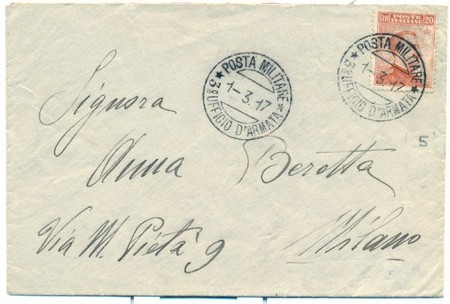 POSTE
ITALIANE
20
★ POSTA MILITARE ★
1-3.17
3ª UFFICIO D'ARMATA
★ POSTA MILITARE ★
1-3.17
3ª UFFICIO D'ARMATA
5
Signora
Anna Beretta
Via M. Pietà 9
Milano